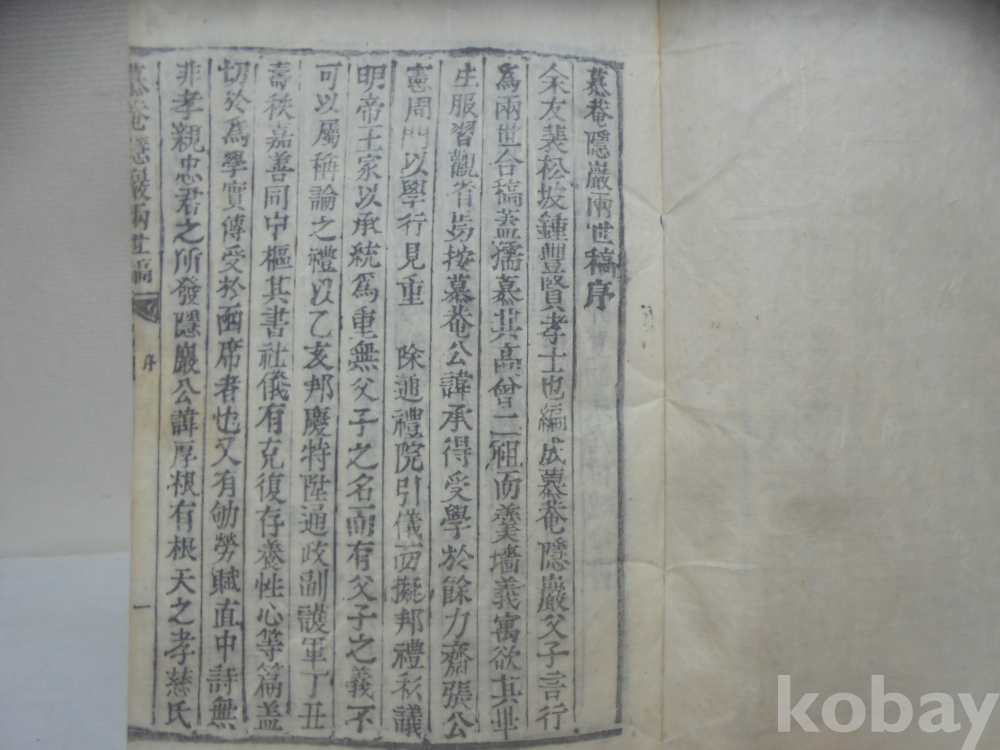 慕菴隱巖兩世稿序
余友裴松坡鍾豐賢孝士也編成慕菴隱巖父子言行
爲兩世合稿蓋孺慕其高曾二祖而羹墻義寓欲其世
生服習觀省步按慕菴公諱承得受學於餘力齋張公
憲周門以學行見重 除通禮院引儀而擬邦禮彩議
明帝王家以承統爲重無父子之名而有父子之義不
可以屬稱論之禮以乙亥邦慶特陞通政副護軍丁丑
壽秩嘉善同中樞其書社儀有充復存養性心等篇蓋
切於爲學實傳受於函席者也又有劬勞賦直中詩無
非孝親忠君之所發隱巖公諱厚根有根天之孝慈氏
慕菴隱巖兩世稿
序
一
kobay